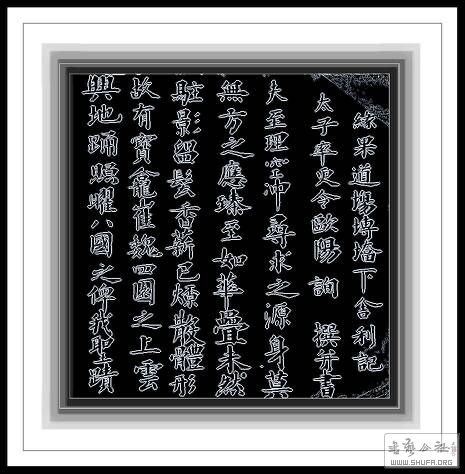 緣果道場塼塔下舍利記
太子率更令歐陽詢撰并書
夫至理空冲尋求之源身莫
無方之應臻至如華疊未然
駐影留髮香薪已燎散體形
故有寶龕崔巍四園之上雲
興地踊照曜八國之仰我聖蹟
WWW.SHUFA.ORG